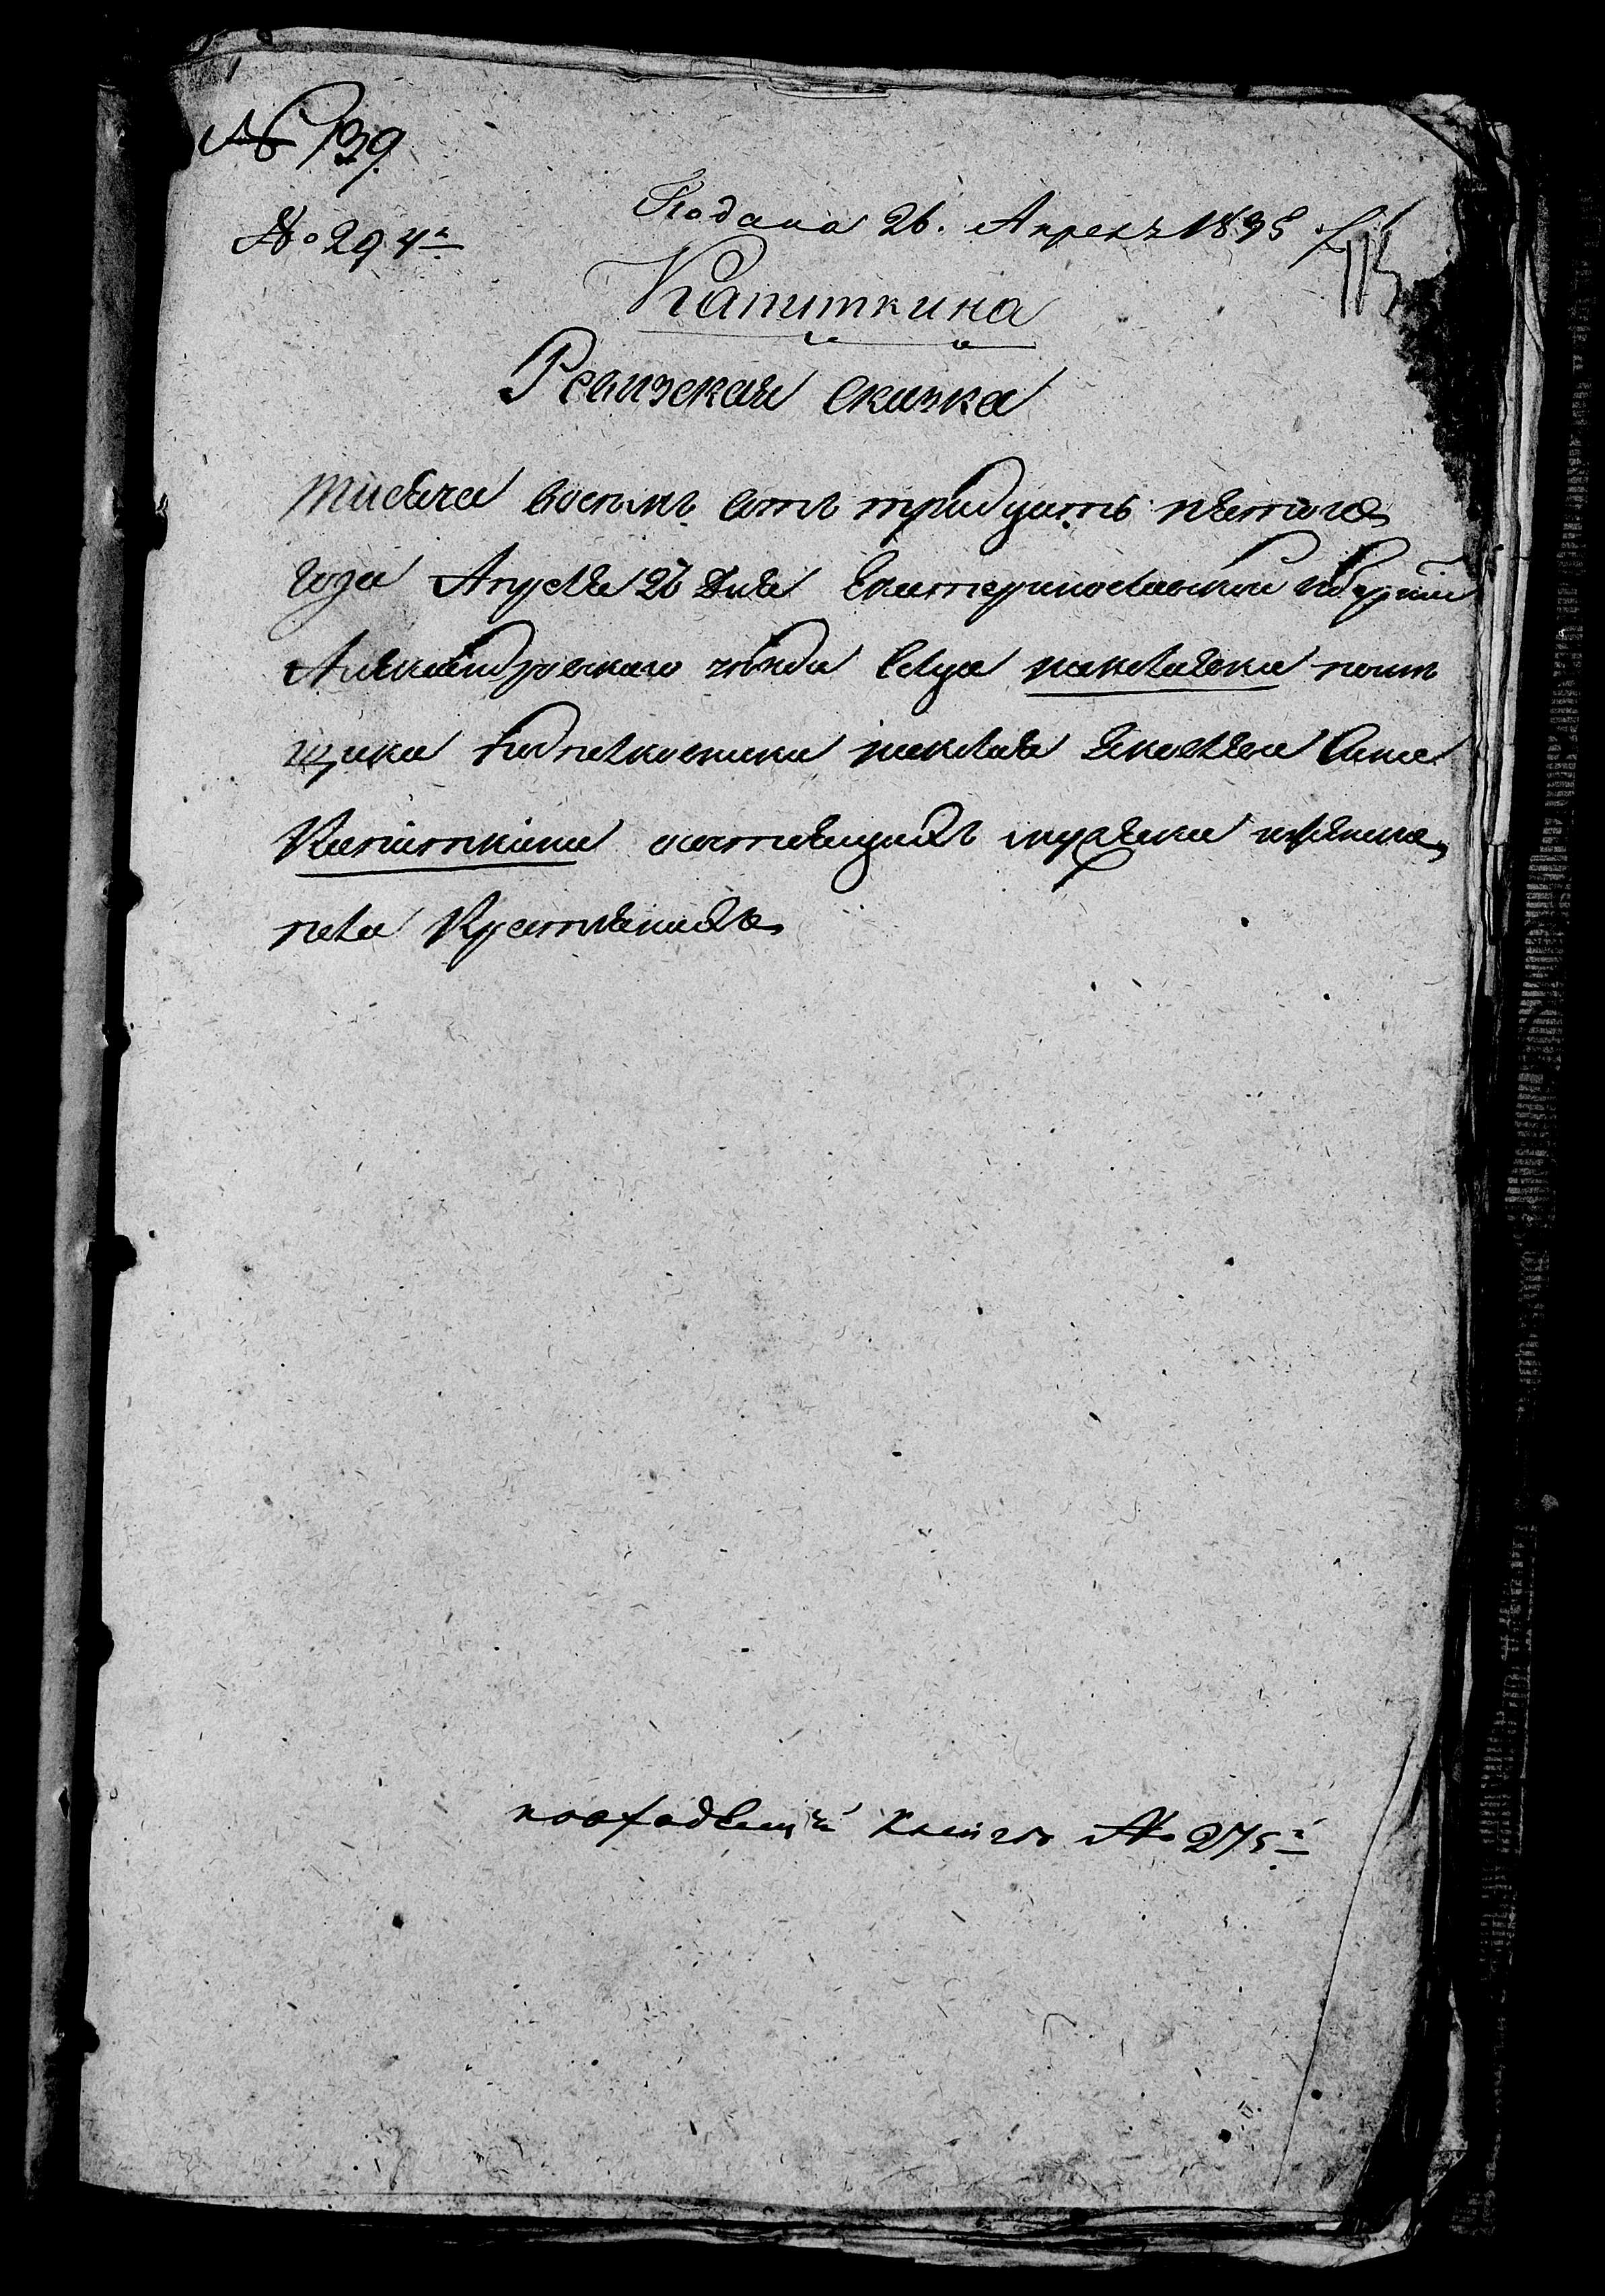 № 139.
№ 294й
Подана 26. Апреля 1835
113
Капиткина
Ревизская сказка
Тисяча восемь сотъ тридцать пятого
года Апреля 26 дня Екатеринославской губернии
Александровскаго уезда Селца поме
щика Подполковника Яковлева Сина
Капиткина состоящихъ мужеска и женска
пола Крестянахъ
повходящей книги № 275й